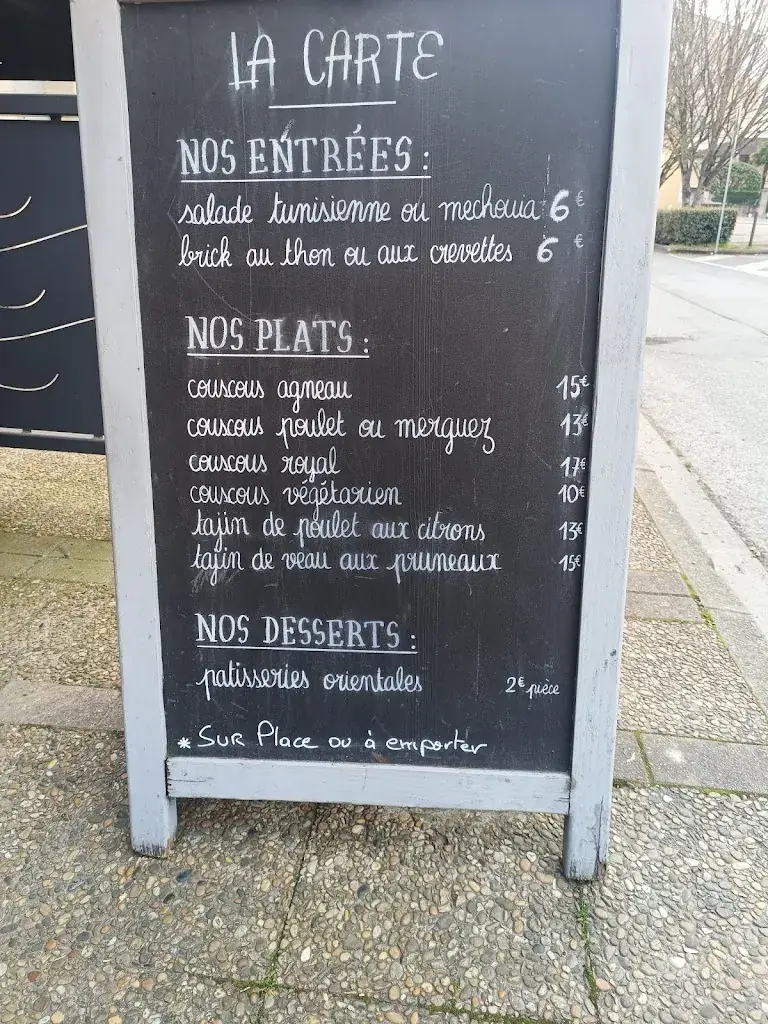 LA CARTE
NOS ENTRÉES :
salade tunisienne ou mechouia 6€
brick au thon ou aux crevettes 6€
NOS PLATS :
couscous agneau 15€
couscous poulet ou merguez 13€
couscous royal 17€
couscous végétarien 10€
tajin de poulet aux citrons 13€
tajin de veau aux pruneaux 15€
NOS DESSERTS :
patisseries orientales 2€ pièce
* SUR Place ou à emporter